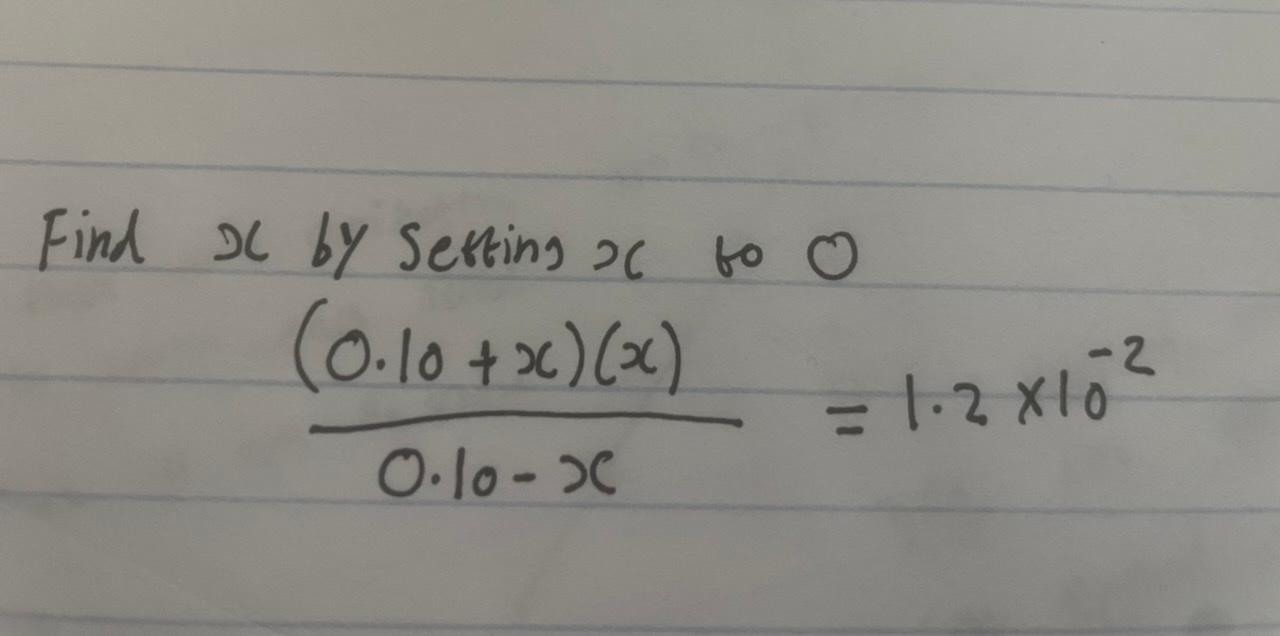 Find x by setting x to 0
(0.10 + x)(x)
/ 0.10 - x = 1.2 × 10^-2